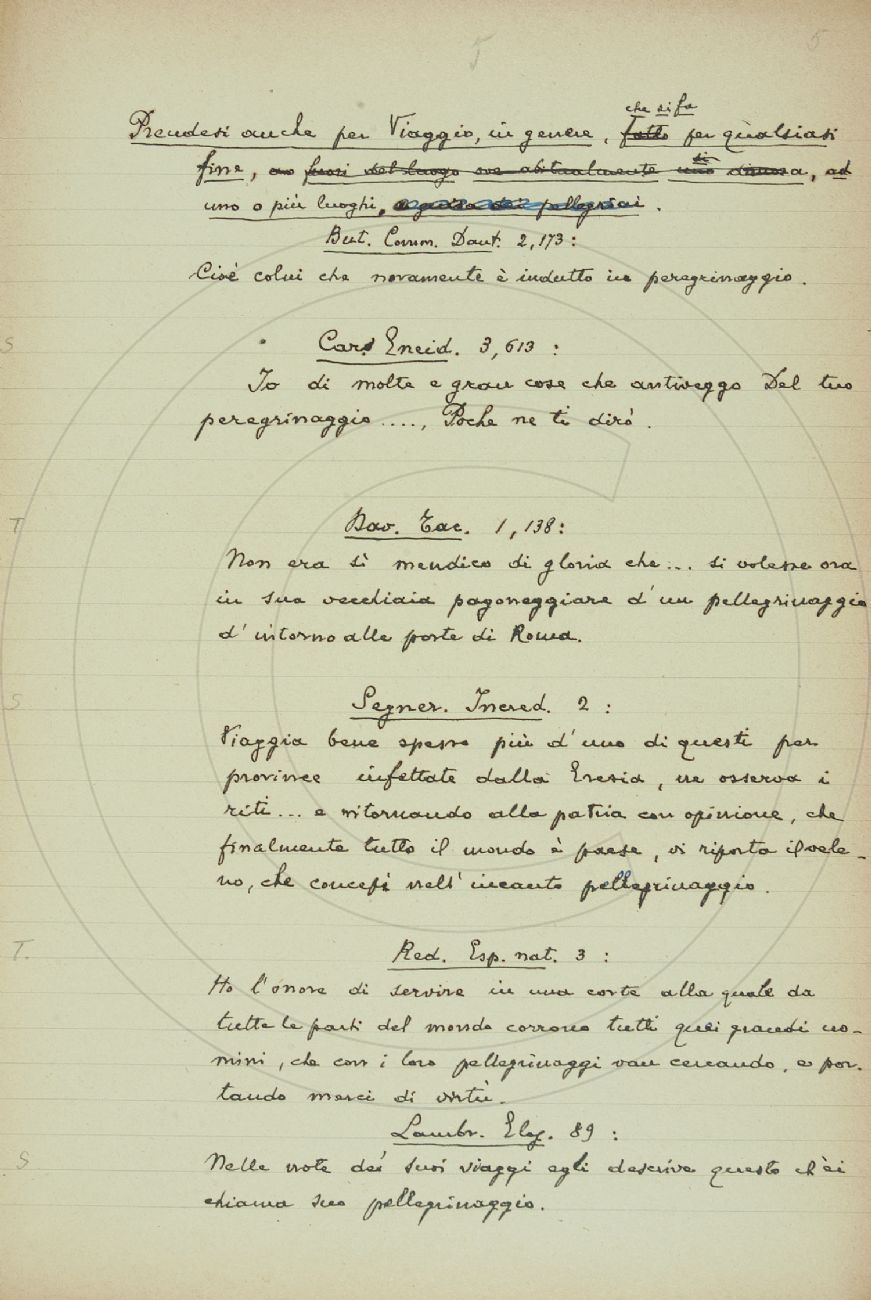 5 5
che si fa
Prendesi anche per Viaggio, in genere, fatto per qualsiasi
fine, fuori del luogo ove abitualmente si dimora, ad
uno o più luoghi, a guisa dei pellegrini.
But. Comm. Dant. 2,173:
Cioè colui che novamente è indutto in peregrinaggio.
S Car. Eneid. 3,613:
Io di molte e gran cose che antiveggo Del tuo
peregrinaggio...., Poche ne ti dirò.
T Dav. Tac. 1,138:
Non era sì mendico di gloria che... si volesse ora
in sua vecchiaia pagoneggiare d'un pellegrinaggio
d'intorno alle porte di Roma.
S Segner. Incred. 2:
Viaggia bene spesso più d'uno di questi per
provincee infettate dalla Eresia, ne osserva i
riti... e ritornando alla patria con opinione, che
finalmente tutto il mondo è paese, vi riporta il vele-
no, che concepì nell'incauto pellegrinaggio.
T. Red. Esp. nat. 3:
Ho l'onore di servire in una corte alla quale da
tutte le parti del mondo corrono tutti quei grandi uo-
mini, che con i loro pellegrinaggi van cercando, e por-
tando merci di virtù.
Lambr. Elog. 89:
S Nelle note dei suoi viaggi egli descrive questo ch'ei
chiama suo pellegrinaggio.